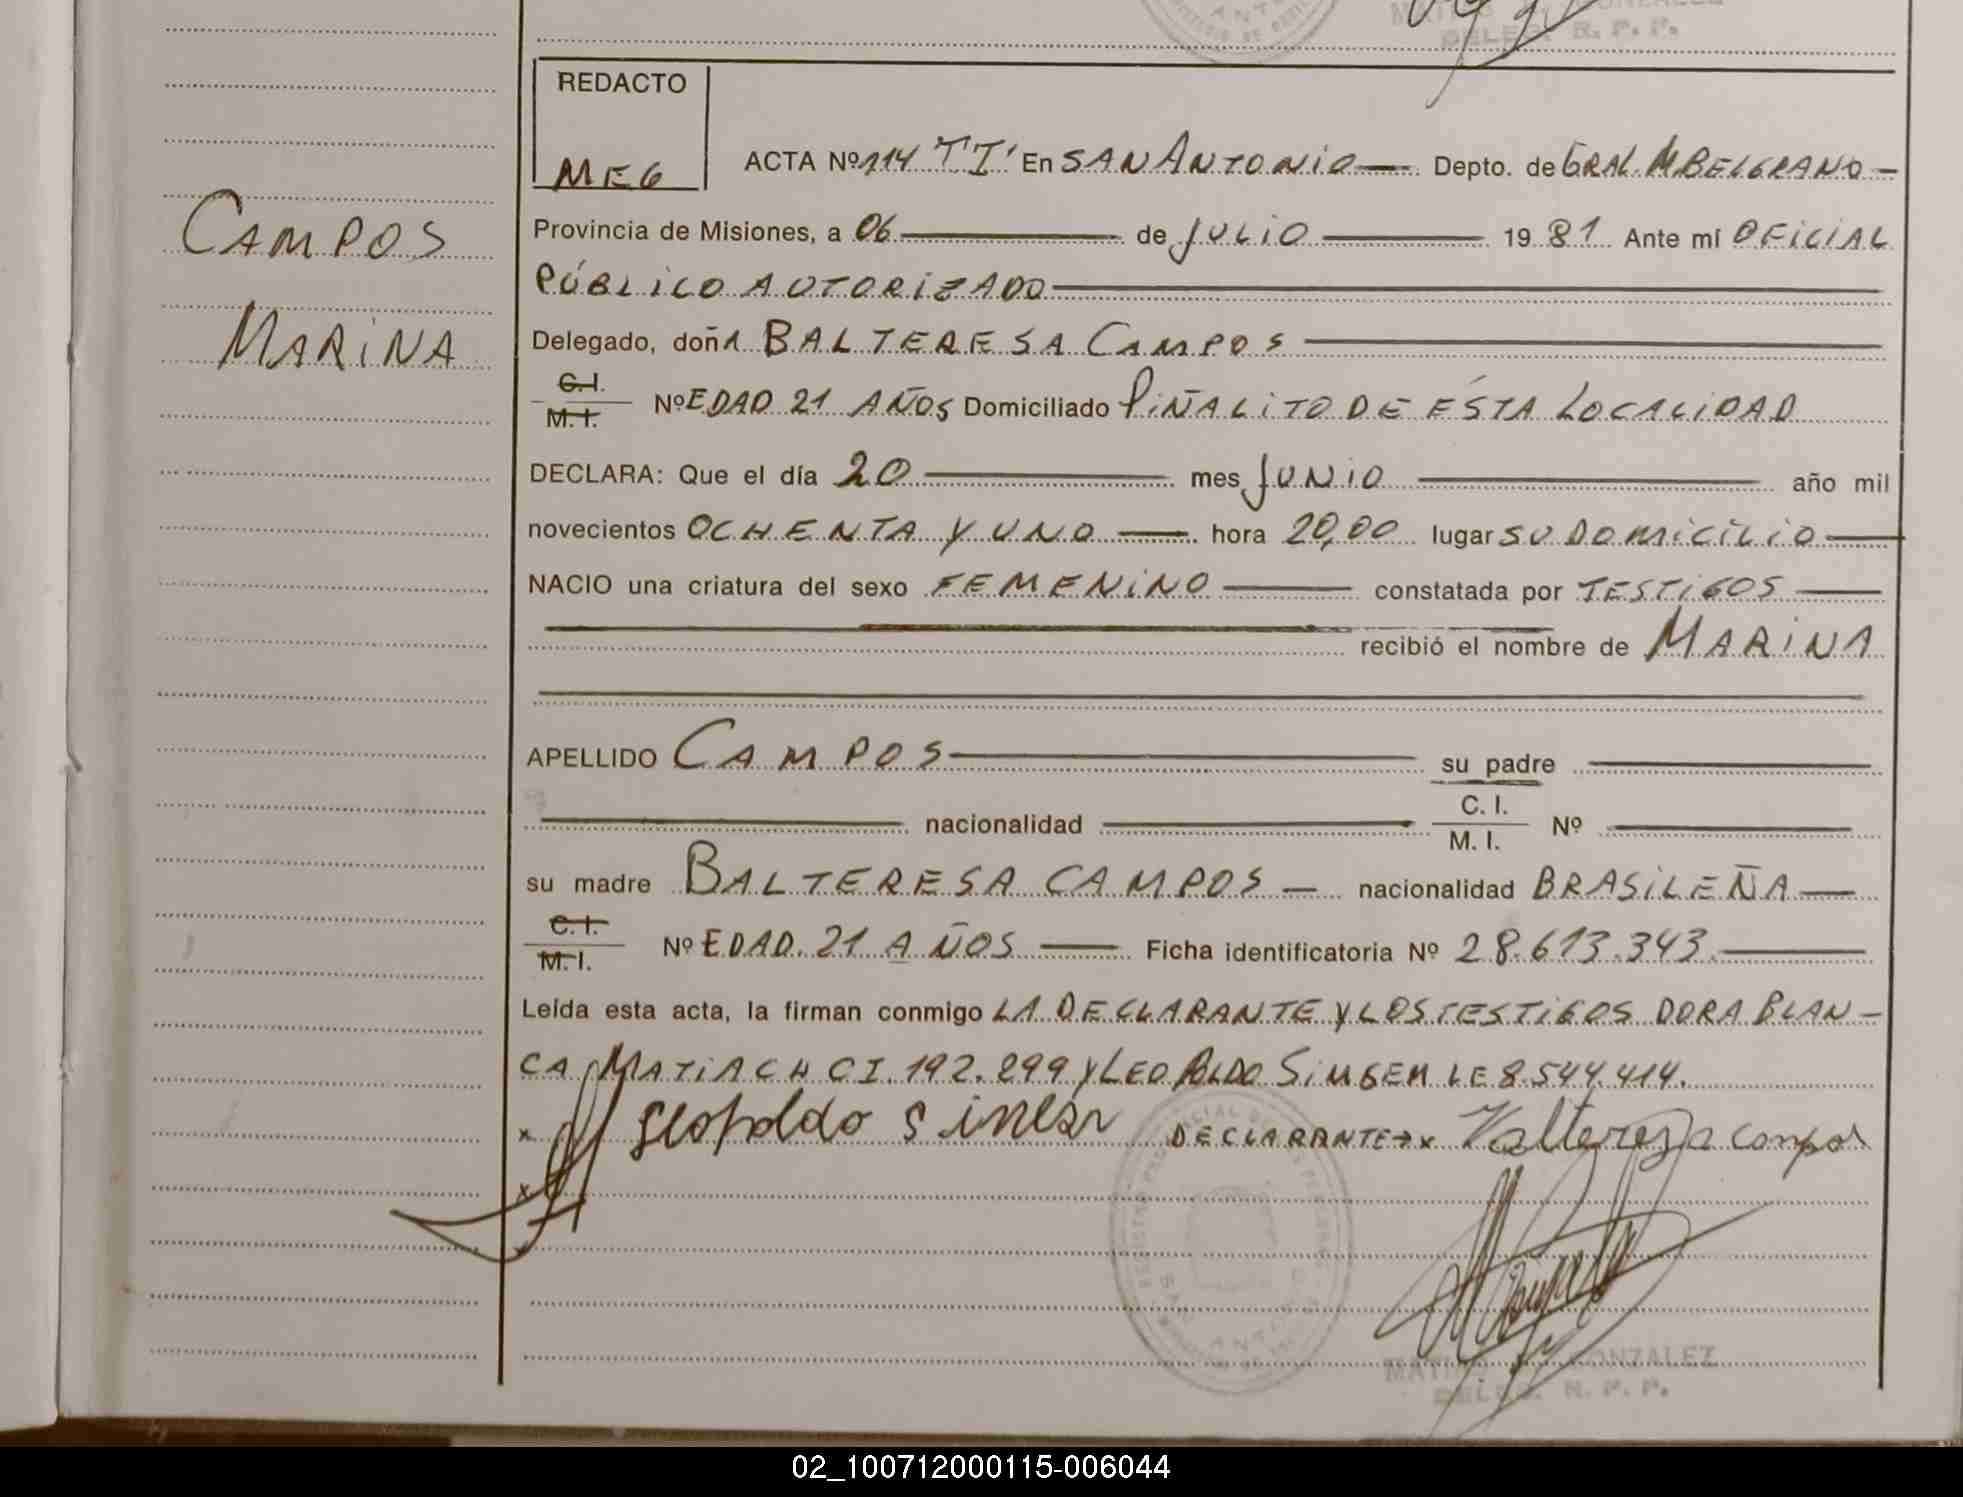 REDACTO
MEG
ACTA Nº 114 "TI" En SAN ANTONIO Depto. de GRAL. M BELGRANO
CAMPOS
MARINA
Provincia de Misiones, a 06 de JULIO 1981 Ante mí OFICIAL
PÚBLICO AUTORIZADO
Delegado, doñA BALTERESA CAMPOS
C. I.
M. I.
Nº EDAD 21 AÑOS Domiciliado PIÑALITO DE ÉSTA LOCALIDAD
DECLARA: Que el día 20 mes JUNIO año mil
novecientos OCHENTA Y UNO hora 20,00 lugar SU DOMICILIO
NACIO una criatura del sexo FEMENINO constatada por TESTIGOS
recibió el nombre de MARINA
APELLIDO CAMPOS su padre
nacionalidad C. I. Nº
M. I.
su madre BALTERESA CAMPOS nacionalidad BRASILEÑA
C. I.
M. I.
Nº EDAD 21 AÑOS Ficha identificatoria Nº 28.613.343.
Leída esta acta, la firman conmigo LA DECLARANTE Y LOS TESTIGOS DORA BLAN-
CA MATIACH CI. 192.299 Y LEOPOLDO LE 8.544.414.
x Leopoldo DECLARANTE→x Valtereza campos
x
GONZALEZ
DELEG. R. P. P.
02_100712000115-006044